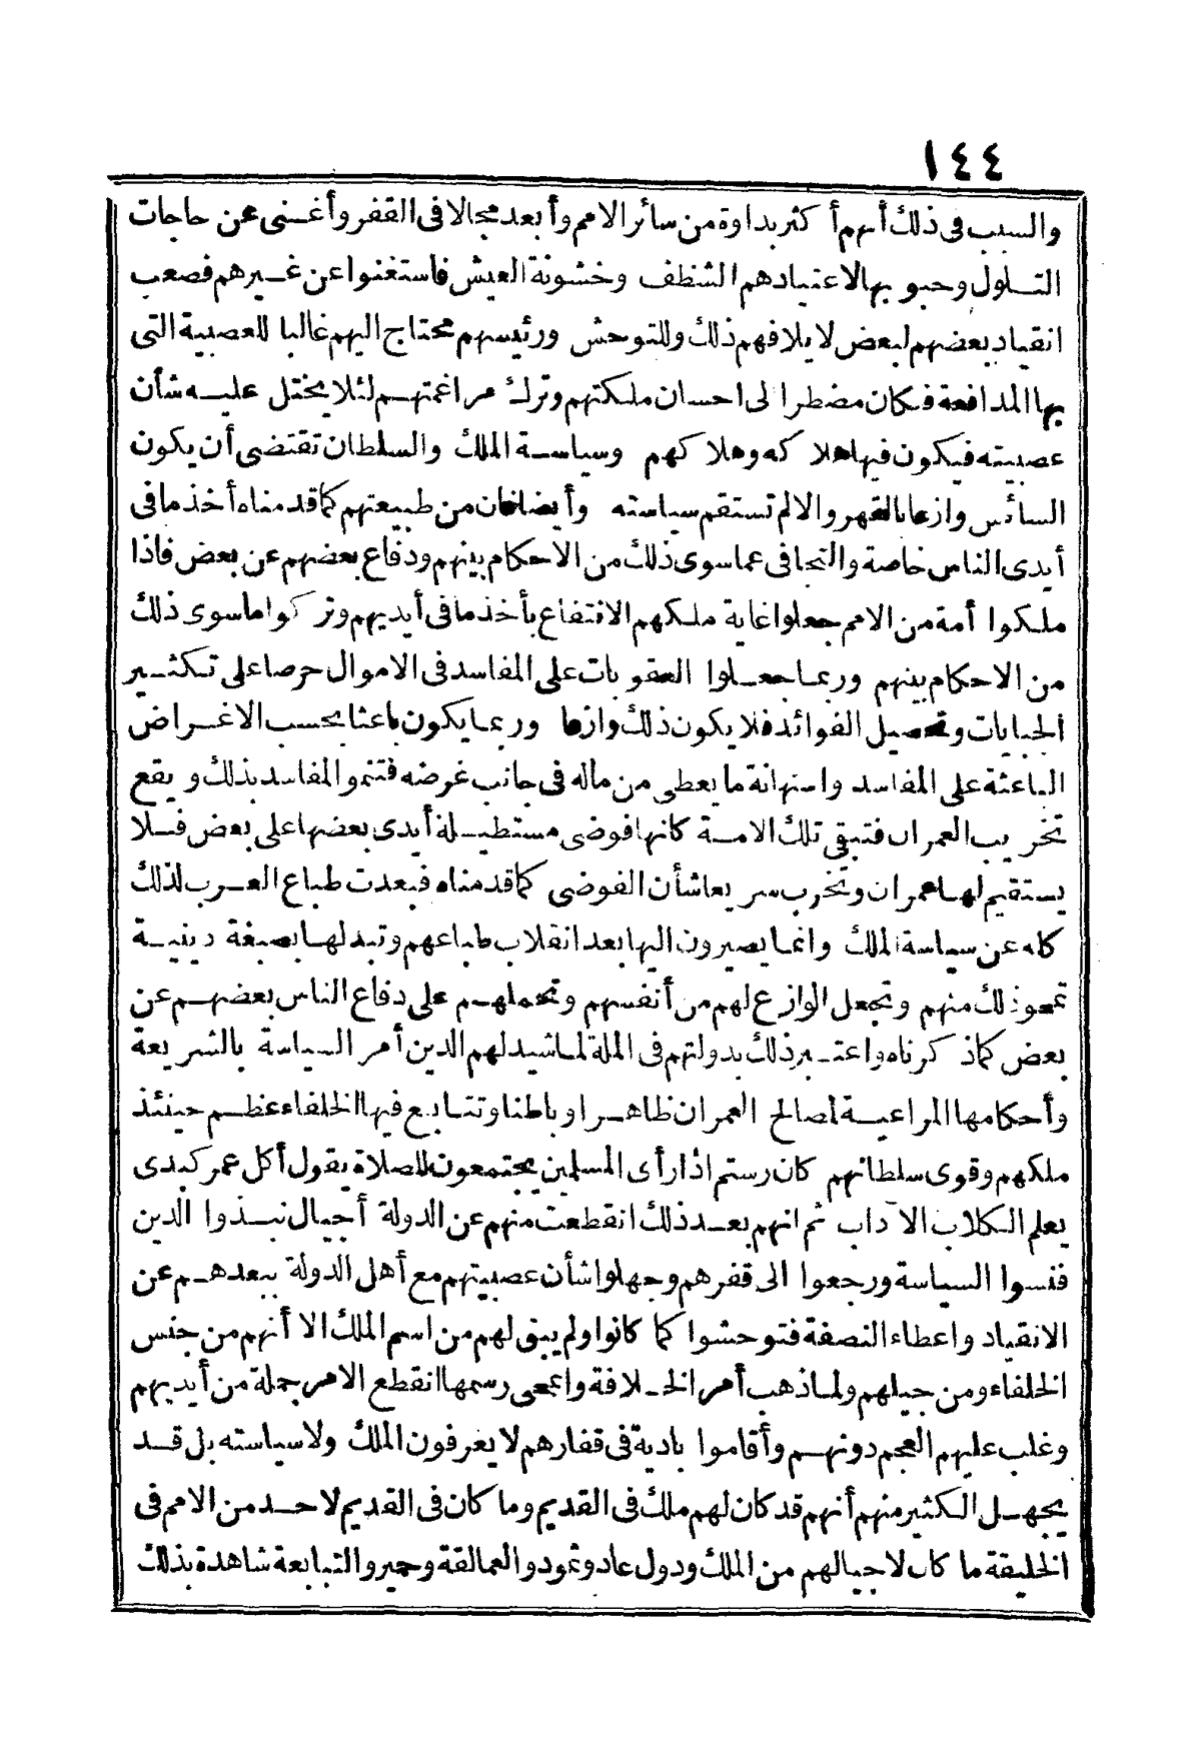 ١٤٤
والسبب فى ذلك أنهم أكثر بداوة من سائر الامم وأبعد مجالا فى القفر وأغنى عن حاجات
التلول وحبوبها لاعتيادهم الشظف وخشونة العيش فاستغنوا عن غيرهم فصعب
انقياد بعضهم لبعض لايلافهم ذلك وللتوحش ورئيسهم محتاج اليهم غالبا للعصبية التى
بها المدافعة فكان مضطرا الى احسان ملكتهم وترك مراغمتهم لئلا يختل عليه شأن
عصبيته فيكون فيها هلاكه وهلاكهم وسياسة الملك والسلطان تقتضى أن يكون
السائس وازعا بالقهر والا لم تستقم سياسته وأيضا فان من طبيعتهم كما قدمناه أخذ ما فى
أيدى الناس خاصة والتجافى عما سوى ذلك من الاحكام بينهم ودفاع بعضهم عن بعض فاذا
ملكوا أمة من الامم جعلوا غاية ملكهم الانتفاع بأخذ ما فى أيديهم وتركوا ما سوى ذلك
من الاحكام بينهم وربما جعلوا العقوبات على المفاسد فى الاموال حرصا على تكثير
الجبايات وتحصيل الفوائد فلا يكون ذلك وازعا وربما يكون باعثا بحسب الاغراض
الباعثة على المفاسد واستهانة ما يعطى من ماله فى جانب غرضه فتنمو المفاسد بذلك ويقع
تخريب العمران فتبقى تلك الامة كانها فوضى مستطيلة أيدى بعضها على بعض فلا
يستقيم لها عمران وتخرب سريعا شأن الفوضى كما قدمناه فبعدت طباع العرب لذلك
كله عن سياسة الملك وانما يصيرون اليها بعد انقلاب طباعهم وتبدلها بصبغة دينية
تمحو ذلك منهم وتجعل الوازع لهم من أنفسهم وتحملهم على دفاع الناس بعضهم عن
بعض كما ذكرناه واعتبر ذلك بدولتهم فى الملة لما شيد لهم الدين أمر السياسة بالشريعة
وأحكامها المراعية لمصالح العمران ظاهرا وباطنا وتتابع فيها الخلفاء عظم حينئذ
ملكهم وقوى سلطانهم كان رستم اذا رأى المسلمين يجتمعون للصلاة يقول أكل عمر كبدى
يعلم الكلاب الآداب ثم انهم بعد ذلك انقطعت منهم عن الدولة أجيال نبذوا الدين
فنسوا السياسة ورجعوا الى قفرهم وجهلوا شأن عصبيتهم مع أهل الدولة ببعدهم عن
الانقياد واعطاء النصفة فتوحشوا كما كانوا ولم يبق لهم من اسم الملك الا أنهم من جنس
الخلفاء ومن جيلهم ولما ذهب أمر الخلافة وامحى رسمها انقطع الامر جملة من أيديهم
وغلب عليهم العجم دونهم وأقاموا بادية فى قفارهم لا يعرفون الملك ولا سياسته بل قد
يجهل الكثير منهم أنهم قد كان لهم ملك فى القديم وما كان فى القديم لاحد من الامم فى
الخليقة ما كان لاجيالهم من الملك ودول عاد وثمود والعمالقة وحمير والتبابعة شاهدة بذلك